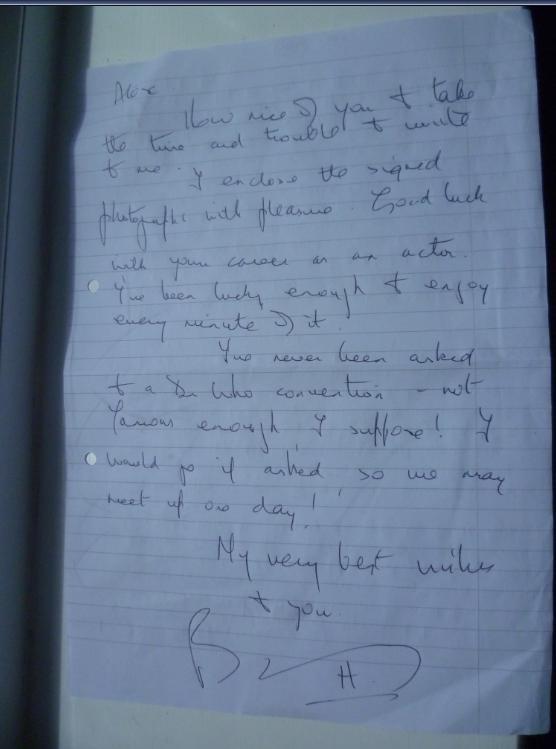 Alex
How nice of you to take
the time and trouble to write
to me. I enclose the signed
photographs with pleasure. Good luck
with your career as an actor.
I've been lucky enough to enjoy
every minute of it.
I've never been asked
to a Dr Who convention - not
famous enough, I suppose! I
would go if asked, so we may
meet up one day!
My very best wishes
to you.